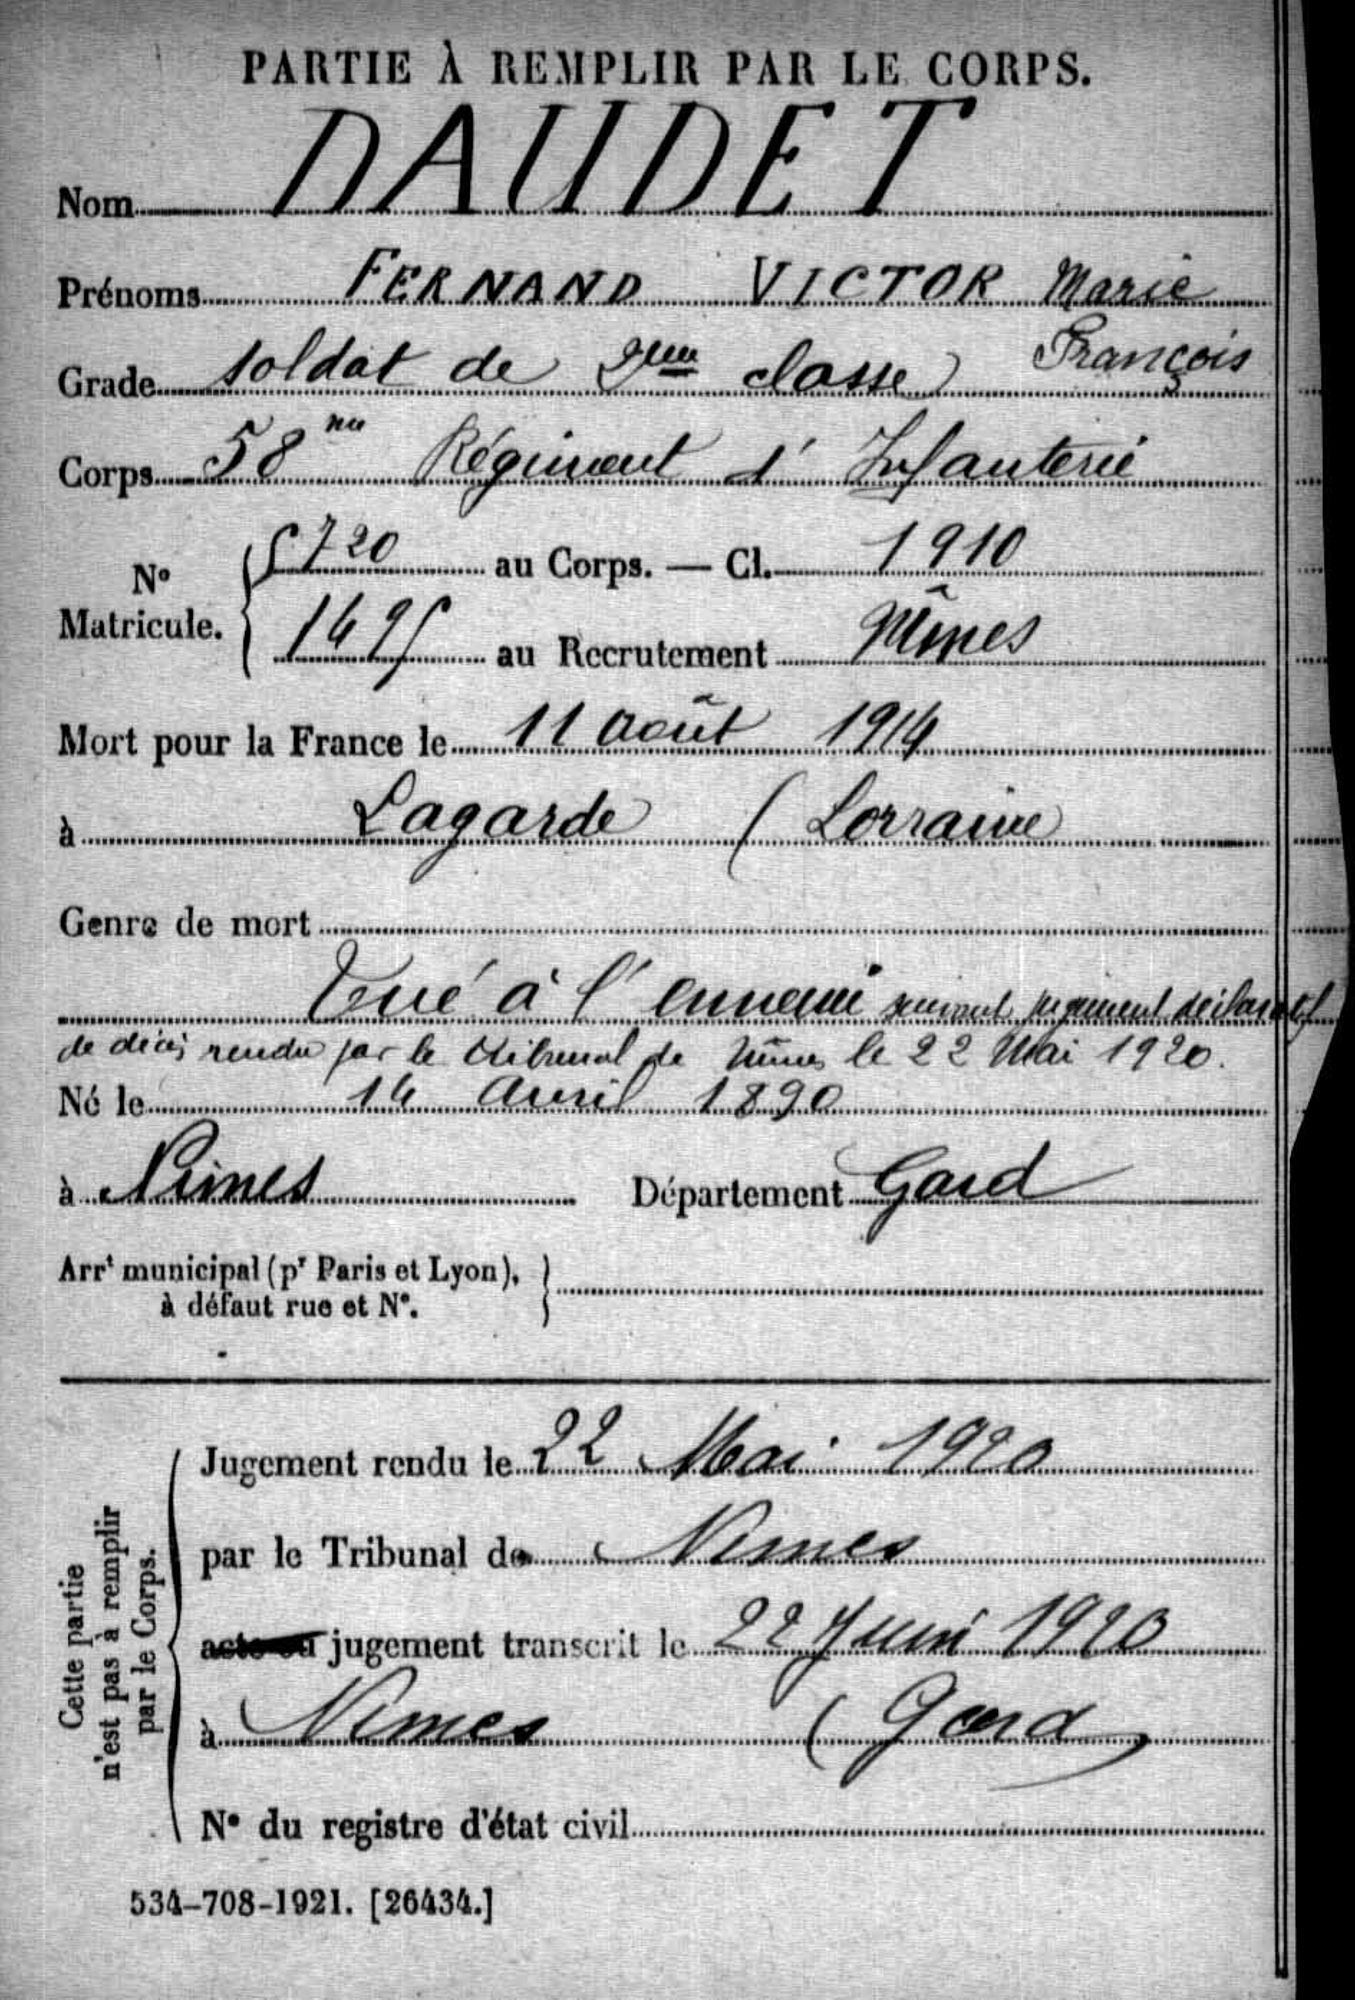 PARTIE À REMPLIR PAR LE CORPS.
Nom DAUDET
Prénoms FERNAND VICTOR Marie
François
Grade soldat de 2ème classe
Corps 58me Régiment d'Infanterie
N° Matricule. { 5720 au Corps. — Cl. 1910
1495 au Recrutement Nîmes
Mort pour la France le 11 août 1914
à Lagarde (Lorraine
Genre de mort
Tué à l'ennemi suivant jugement déclaratif
de décès rendu par le tribunal de Nîmes le 22 Mai 1920.
Né le 14 Avril 1890
à Nimes Département Gard
Arrt municipal (pr Paris et Lyon), }
à défaut rue et N°.
Cette partie
n'est pas à remplir
par le Corps.
Jugement rendu le 22 Mai 1920
par le Tribunal de Nimes
acte ou jugement transcrit le 22 Juin 1920
à Nimes (Gard
N° du registre d'état civil
534-708-1921. [26434.]